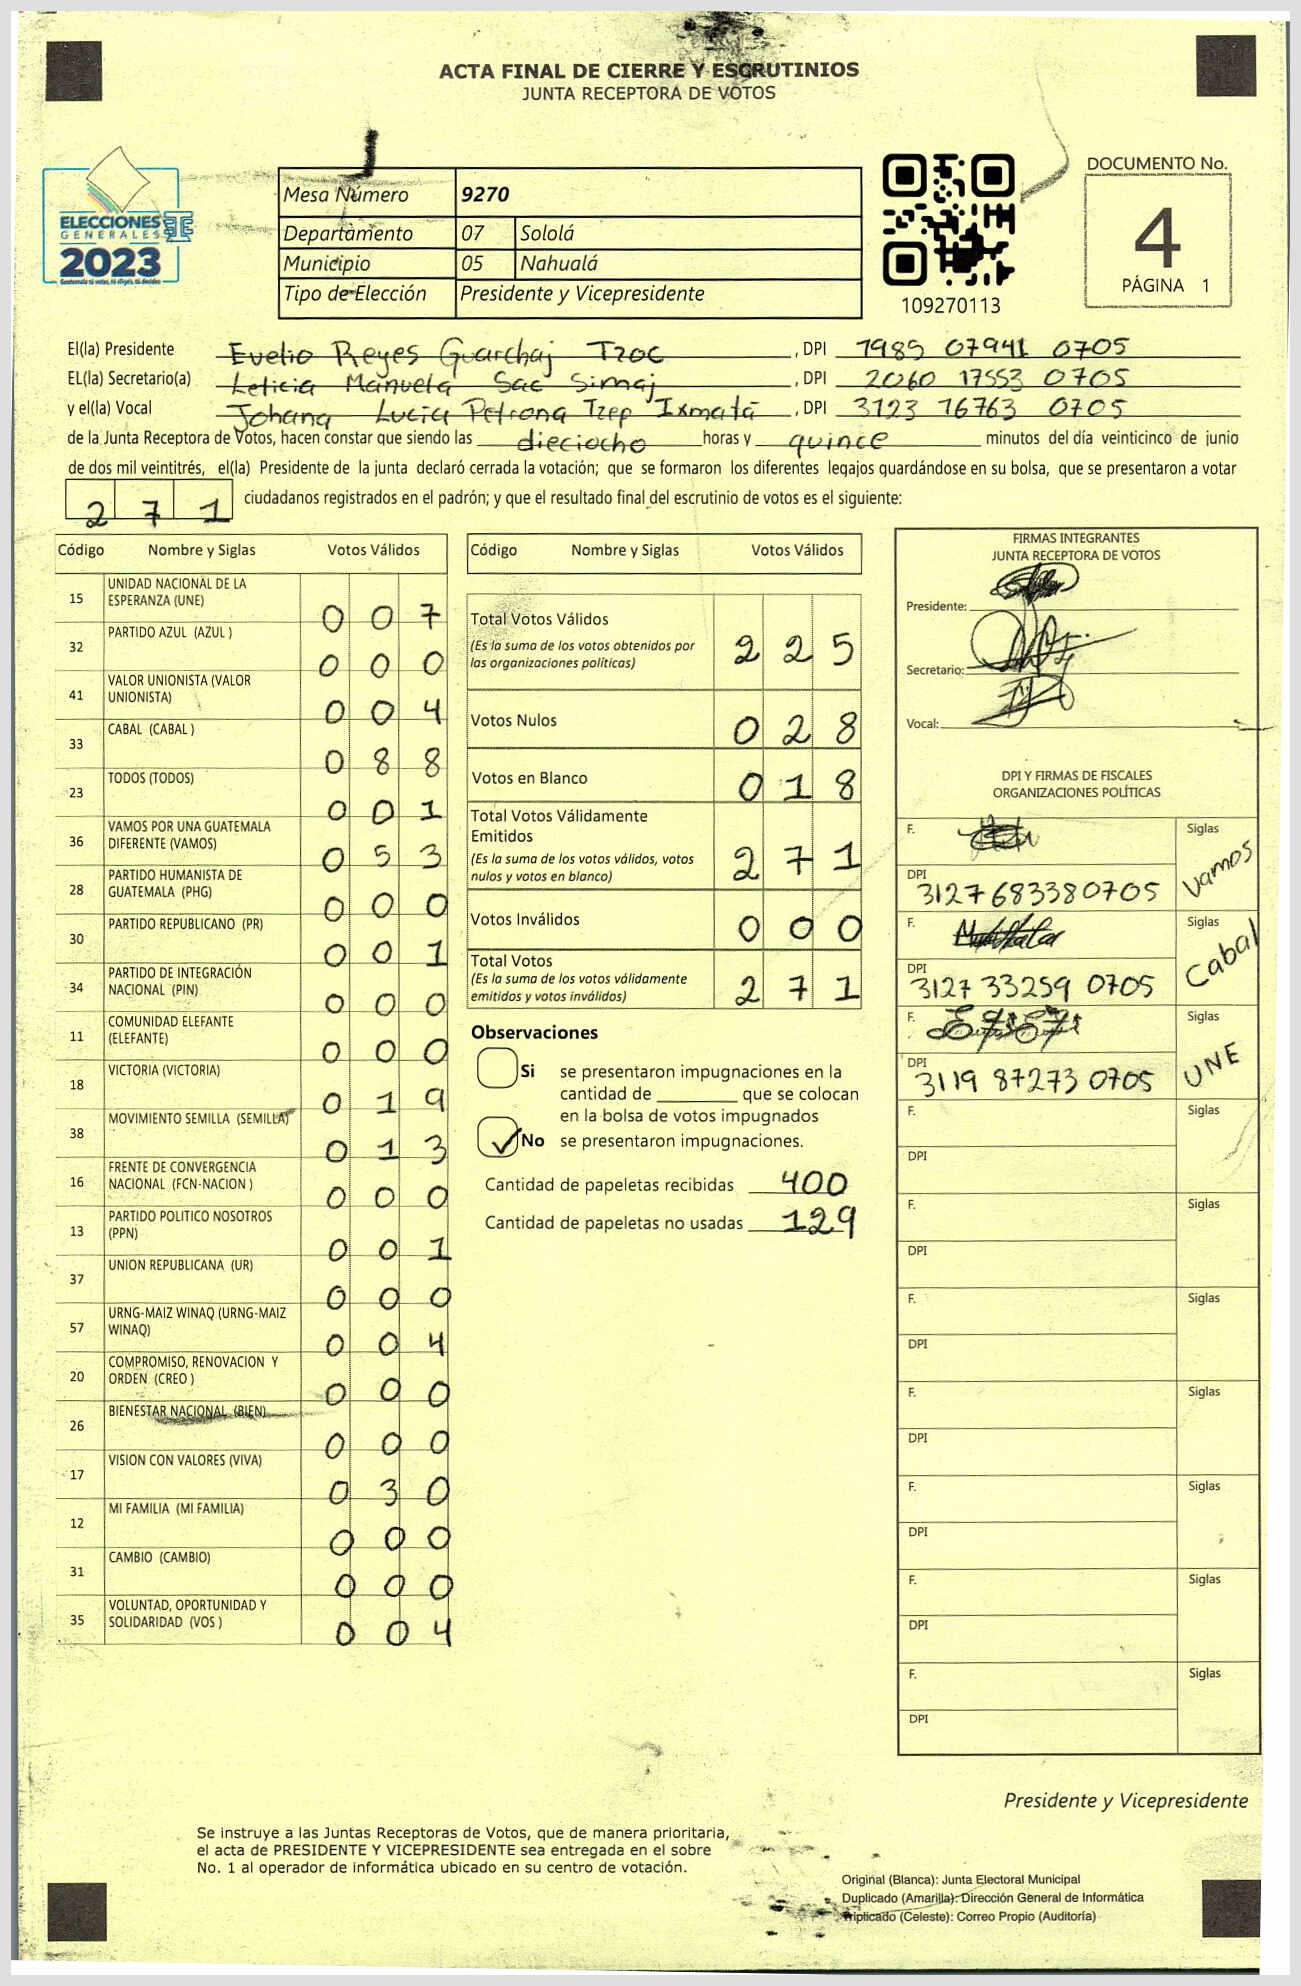 ACTA FINAL DE CIERRE Y ESCRUTINIOS
JUNTA RECEPTORA DE VOTOS
ELECCIONES
GENERALES
2023
Mesa Número 9270
Departamento 07 Sololá
Municipio 05 Nahualá
Tipo de Elección Presidente y Vicepresidente
109270113
DOCUMENTO No.
4
PÁGINA 1
El(la) Presidente Evelio Reyes Guarchaj Tzoc , DPI 1985 07941 0705
EL(la) Secretario(a) Leticia Manuela Sac Simaj , DPI 2060 17553 0705
y el(la) Vocal Johana Lucia Petrona Tzep Ixmatá , DPI 3123 16763 0705
de la Junta Receptora de Votos, hacen constar que siendo las dieciocho horas y quince minutos del día veinticinco de junio
de dos mil veintitrés, el(la) Presidente de la junta declaró cerrada la votación; que se formaron los diferentes legajos guardándose en su bolsa, que se presentaron a votar
271 ciudadanos registrados en el padrón; y que el resultado final del escrutinio de votos es el siguiente:
Código Nombre y Siglas Votos Válidos
15 UNIDAD NACIONAL DE LA ESPERANZA (UNE) 007
32 PARTIDO AZUL (AZUL ) 000
41 VALOR UNIONISTA (VALOR UNIONISTA) 004
33 CABAL (CABAL ) 088
23 TODOS (TODOS) 001
36 VAMOS POR UNA GUATEMALA DIFERENTE (VAMOS) 053
28 PARTIDO HUMANISTA DE GUATEMALA (PHG) 000
30 PARTIDO REPUBLICANO (PR) 001
34 PARTIDO DE INTEGRACIÓN NACIONAL (PIN) 000
11 COMUNIDAD ELEFANTE (ELEFANTE) 000
18 VICTORIA (VICTORIA) 019
38 MOVIMIENTO SEMILLA (SEMILLA) 013
16 FRENTE DE CONVERGENCIA NACIONAL (FCN-NACION ) 000
13 PARTIDO POLITICO NOSOTROS (PPN) 001
37 UNION REPUBLICANA (UR) 000
57 URNG-MAIZ WINAQ (URNG-MAIZ WINAQ) 004
20 COMPROMISO, RENOVACION Y ORDEN (CREO ) 000
26 BIENESTAR NACIONAL (BIEN) 000
17 VISION CON VALORES (VIVA) 030
12 MI FAMILIA (MI FAMILIA) 000
31 CAMBIO (CAMBIO) 000
35 VOLUNTAD, OPORTUNIDAD Y SOLIDARIDAD (VOS ) 004
Código Nombre y Siglas Votos Válidos
Total Votos Válidos 225
(Es la suma de los votos obtenidos por
las organizaciones políticas)
Votos Nulos 028
Votos en Blanco 018
Total Votos Válidamente
Emitidos 271
(Es la suma de los votos válidos, votos
nulos y votos en blanco)
Votos Inválidos 000
Total Votos 271
(Es la suma de los votos válidamente
emitidos y votos inválidos)
Observaciones
Si se presentaron impugnaciones en la
cantidad de ________ que se colocan
en la bolsa de votos impugnados
No se presentaron impugnaciones.
Cantidad de papeletas recibidas 400
Cantidad de papeletas no usadas 129
FIRMAS INTEGRANTES
JUNTA RECEPTORA DE VOTOS
Presidente:
Secretario:
Vocal:
DPI Y FIRMAS DE FISCALES
ORGANIZACIONES POLÍTICAS
F. Siglas Vamos
DPI 3127683380705
F. Siglas Cabal
DPI 3127 33259 0705
F. Siglas UNE
DPI 3119 87273 0705
F. Siglas
DPI
F. Siglas
DPI
F. Siglas
DPI
F. Siglas
DPI
F. Siglas
DPI
F. Siglas
DPI
F. Siglas
DPI
Presidente y Vicepresidente
Se instruye a las Juntas Receptoras de Votos, que de manera prioritaria,
el acta de PRESIDENTE Y VICEPRESIDENTE sea entregada en el sobre
No. 1 al operador de informática ubicado en su centro de votación.
Original (Blanca): Junta Electoral Municipal
Duplicado (Amarilla): Dirección General de Informática
Triplicado (Celeste): Correo Propio (Auditoría)